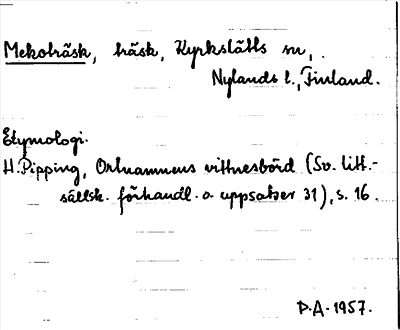 Mekoträsk, träsk, Kyrkslätts sn,
Nylands l., Finland.
Etymologi.
H. Pipping, Ortnamnens vittnesbörd (Sv. litt.-
sällsk. förhandl. o. uppsatser 31), s. 16.
P.A. 1957.